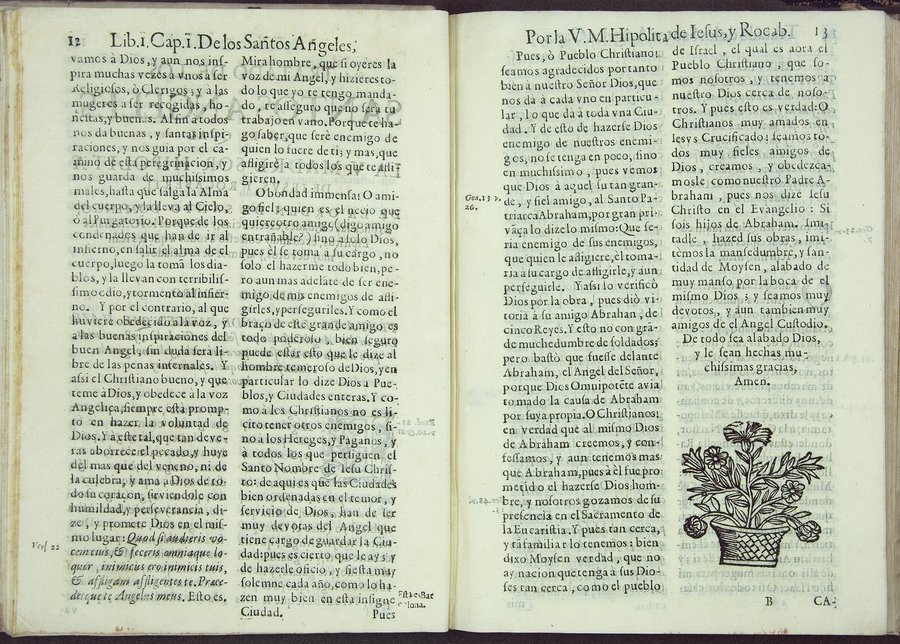 12 Lib.ĩ. Cap.ĩ. De los Santos Angeles,
vamos à Dios, y aun nos ins-
pira muchas vezes à vnos à ser
Religiosos, ò Clerigos; y a las
mugeres a ser recogidas, ho-
nestas, y buenas. Al fin à todos
nos da buenas, y santas inspi-
raciones, y nos guia por el ca-
mino de esta peregrinacion, y
nos guarda de muchissimos
males, hasta que salga la Alma
del cuerpo, y la lleva al Cielo,
ò al Purgatorio. Porque de los
condenados que han de ir al
infierno, en salir el alma de el
cuerpo, luego la tomã los dia-
blos, y la llevan con terribilis-
simo odio, y tormento al infier-
no. Y por el contrario, al que
huviere obedecido al a voz, y
a las buenas inspiraciones del
buen Angel, sin duda serà li-
bre de las penas infernales. Y
assi el Christiano bueno, y que
teme à Dios, y obedece à la voz
Angelica, siempre està promp-
to en hazer la voluntad de
Dios. Y à este tal, que tan deve-
ras aborrece el pecado, y huye
dèl mas que del veneno, ni de
la culebra, y ama à Dios de to-
do su coraçon, sirviendole con
humildad, y perseverancia, di-
ze, y promete Dios en el mis-
mo lugar: Quod si audieris vo-
Vers. 22
cem eius, & feceris omnia que lo-
quor, inimicus ero inimicis tuis,
& affligam affligentes te. Præce-
detque te Angelus meus. Esto es.
Mira hombre, que si oyeres la
voz de mi Angel, y hizieres to-
do lo que yo te tengo manda-
do, te asseguro que no serà tu
trabajo en vano. Porque te ha-
go saber, que serè enemigo de
quien lo fuere de ti; y mas, que
afligirè a todos los que te afli-
gieren.
O bondad immensa! O ami-
go fiel! quien es el necio que
quiere otro amigo (digo amigo
entrañable?) sino a solo Dios,
pues èl se toma a su cargo, no
solo el hazerme todo bien, pe-
ro aun mas adelãte de ser ene-
migo de mis enemigos de afli-
girles, y perseguirles. Y como el
braço de este grande amigo es
todo poderoso, bien seguro
puede estar esto que le dize al
hombre temeroso de Dios, y en
particular lo dize Dios a Pue-
blos, y Ciudades enteras. Y co-
mo a los Christianos no es li-
cito tener otros enemigos, si-
no a los Hereges, y Paganos, y
à todos los que persiguen el
Santo Nombre de Iesu Chris-
to: de aqui es que las Ciudades
bien ordenadas en el temor, y
servicio de Dios, han de ser
muy devotas del Angel que
tiene cargo de guardar la Ciu-
dad: pues es cierto que le ay; y
de hazerle oficio, y fiesta muy
solemne cada año, como lo ha-
zen muy bien en esta insigne
Esta es Bar
celona.
Ciudad.
Pues
Por la V. M. Hipolita de Iesus, y Rocab. 13
Pues, ò Pueblo Christiano!
seamos agradecidos por tanto
bien a nuestro Señor Dios, que
nos dà à cada vno en particu-
lar, lo que dà à toda vna Ciu-
dad. Y de esto de hazerse Dios
enemigo de nuestros enemi-
gos, no se tenga en poco, sino
en muchissimo, pues vemos
que Dios à aquel su tan gran-
Gen. 13 v.
26.
de, y fiel amigo, al Santo Pa-
triarca Abraham, por gran pri-
vãça lo dize lo mismo: Que se-
ria enemigo de sus enemigos,
que quien le afligiere, èl toma-
ria a su cargo de afligirle, y aun
perseguirle. Y assi lo verificò
Dios por la obra, pues diò vi-
toria à su amigo Abrahan, de
cinco Reyes. Y esto no con grã-
de muchedumbre de soldados;
pero bastò que fuesse delante
Abraham, el Angel del Señor,
porque Dios Omnipotẽte avia
tomado la causa de Abraham
por suya propia. O Christianos!
en verdad que al mismo Dios
de Abraham creemos, y con-
fessamos, y aun tenemos mas
que Abraham, pues à èl fue pro-
metido el hazerse Dios hom-
bre, y nosotros gozamos de su
presencia en el Sacramento de
la Eucaristia. Y pues tan cerca,
y tã familiar lo tenemos; bien
dixo Moysen verdad, que no
ay nacion que tenga à sus Dio-
ses tan cerca, como el pueblo
de Israel, el qual es aora el
Pueblo Christiano, que so-
mos nosotros, y tenemos à
nuestro Dios cerca de noso-
tros. Y pues esto es verdad: O
Christianos muy amados en
Iesvs Crucificado! seamos to-
dos muy fieles amigos de
Dios, creamos, y obedezca-
mosle como nuestro Padre A-
braham, pues nos dize Iesu
Christo en el Evangelio: Si
sois hijos de Abraham. Imi-
tadle, hazed sus obras, imi-
temos la mansedumbre, y san-
tidad de Moysen, alabado de
muy manso por la boca de el
mismo Dios; y seamos muy
devotos, y aun tambien muy
amigos de el Angel Custodio.
De todo sea alabado Dios,
y le sean hechas mu-
chissimas gracias,
Amen.
B
CA-